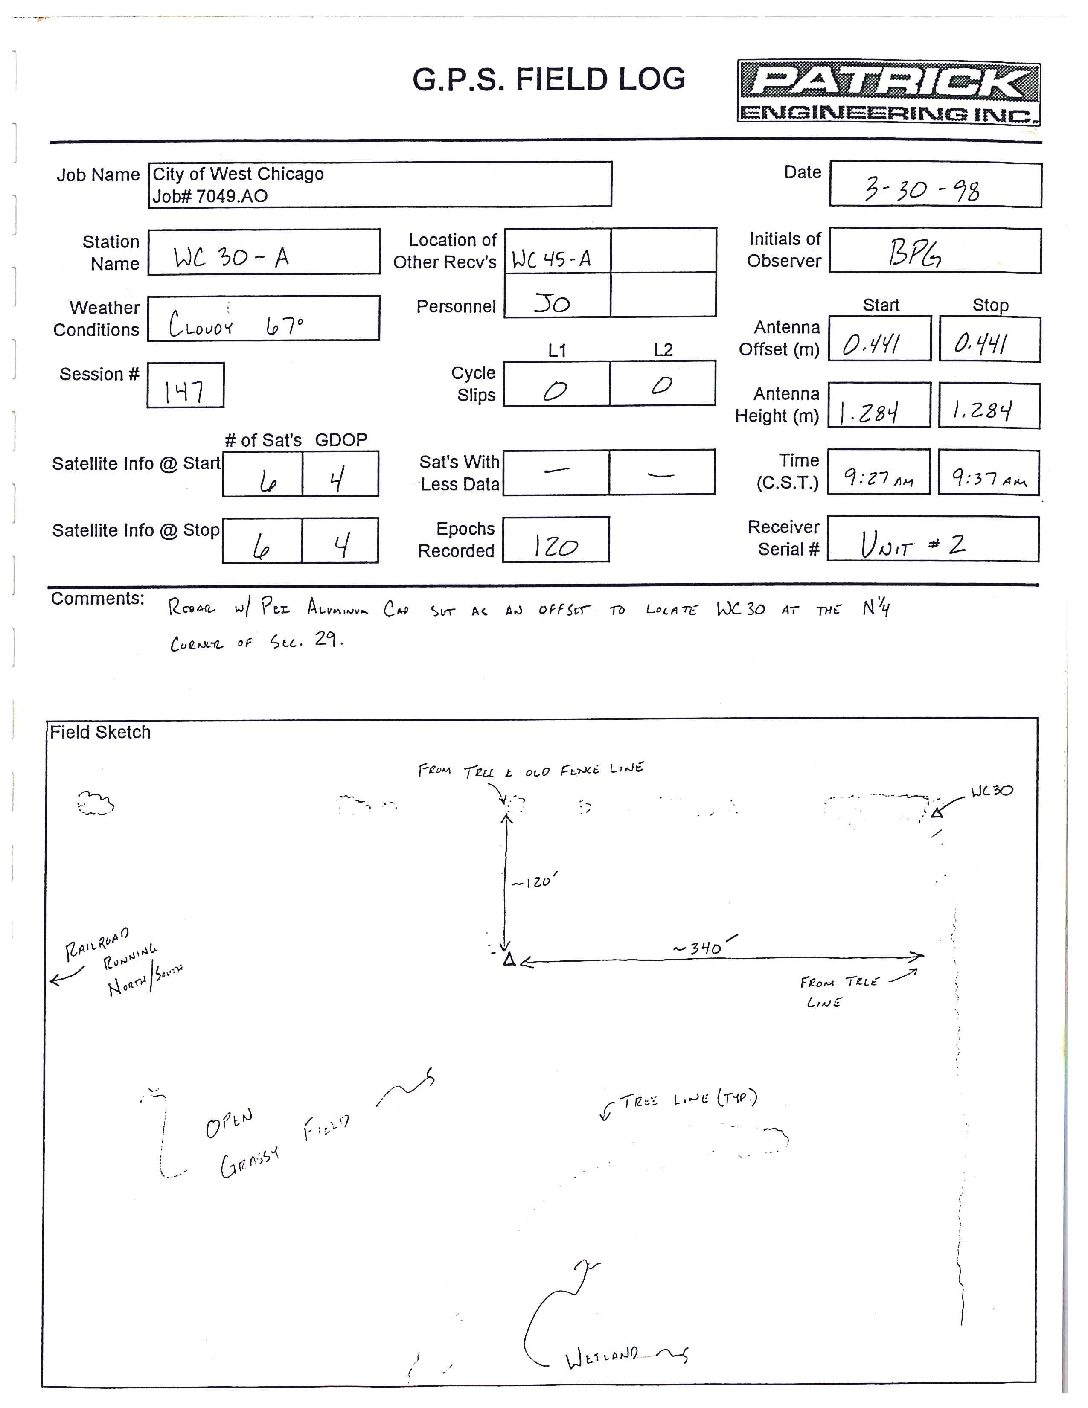 G.P.S. FIELD LOG
PATRICK
ENGINEERING INC.
Job Name City of West Chicago
Job# 7049.AO
Date 3-30-98
Station Name WC 30-A
Location of Other Recv's WC 45-A
Initials of Observer BPG
Weather Conditions CLOUDY 67°
Personnel JO
Start Stop
Antenna Offset (m) 0.441 0.441
Session # 147
L1 L2
Cycle Slips 0 0
Antenna Height (m) 1.284 1.284
# of Sat's GDOP
Satellite Info @ Start 6 4
Sat's With Less Data — —
Time (C.S.T.) 9:27 AM 9:37 AM
Satellite Info @ Stop 6 4
Epochs Recorded 120
Receiver Serial # UNIT #2
Comments: REBAR W/ PEI ALUMINUM CAP SET AS AN OFFSET TO LOCATE WC30 AT THE N¼
CORNER OF SEC. 29.
Field Sketch
FROM TREE & OLD FENCE LINE
WC30
~120'
RAILROAD
RUNNING
NORTH/SOUTH
~340'
FROM TREE
LINE
OPEN
GRASSY FIELD
TREE LINE (TYP)
WETLAND